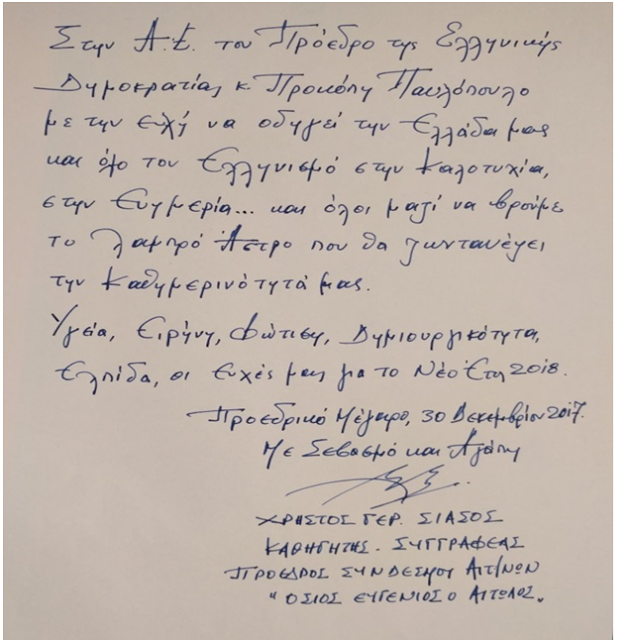 Στην Α.Ε. τον Πρόεδρο της Ελληνικής
Δημοκρατίας κ. Προκόπη Παυλόπουλο
με την ευχή να οδηγεί την Ελλάδα μας
και όλο τον Ελληνισμό στην καλοτυχία,
στην Ευημερία... και όλοι μαζί να βρούμε
το λαμπρό Άστρο που θα ζωντανέψει
την καθημερινότητά μας.
Υγεία, Ειρήνη, Φώτιση, Δημιουργικότητα,
Ελπίδα, οι Ευχές μας για το Νέο Έτος 2018.
Προεδρικό Μέγαρο, 30 Δεκεμβρίου 2017.
Με Σεβασμό και Αγάπη
ΧΡΗΣΤΟΣ ΓΕΡ. ΣΙΑΣΟΣ
ΚΑΘΗΓΗΤΗΣ. ΣΥΓΓΡΑΦΕΑΣ
ΠΡΟΕΔΡΟΣ ΣΥΝΔΕΣΜΟΥ ΑΙΤ/ΝΩΝ
"ΟΣΙΟΣ ΕΥΓΕΝΙΟΣ Ο ΑΙΤΩΛΟΣ"